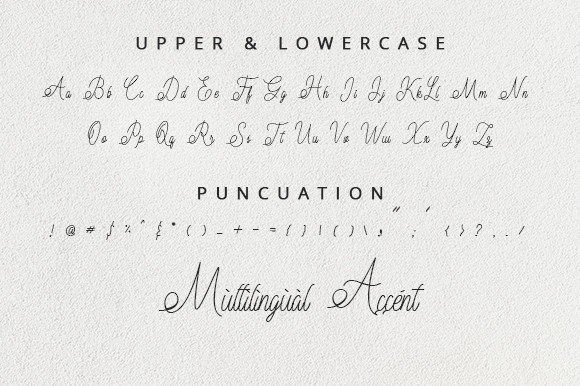 UPPER & LOWERCASE
Aa Bb Cc Dd Ee Ff Gg Hh Ii Jj Kk Ll Mm Nn
Oo Pp Qq Rr Ss Tt Uu Vv Ww Xx Yy Zz
PUNCUATION
! @ # $ % ^ & * ( ) _ + - = { } | ( ) \ , " ; ' { } ? , . /
Mùltilingùàl Açcént